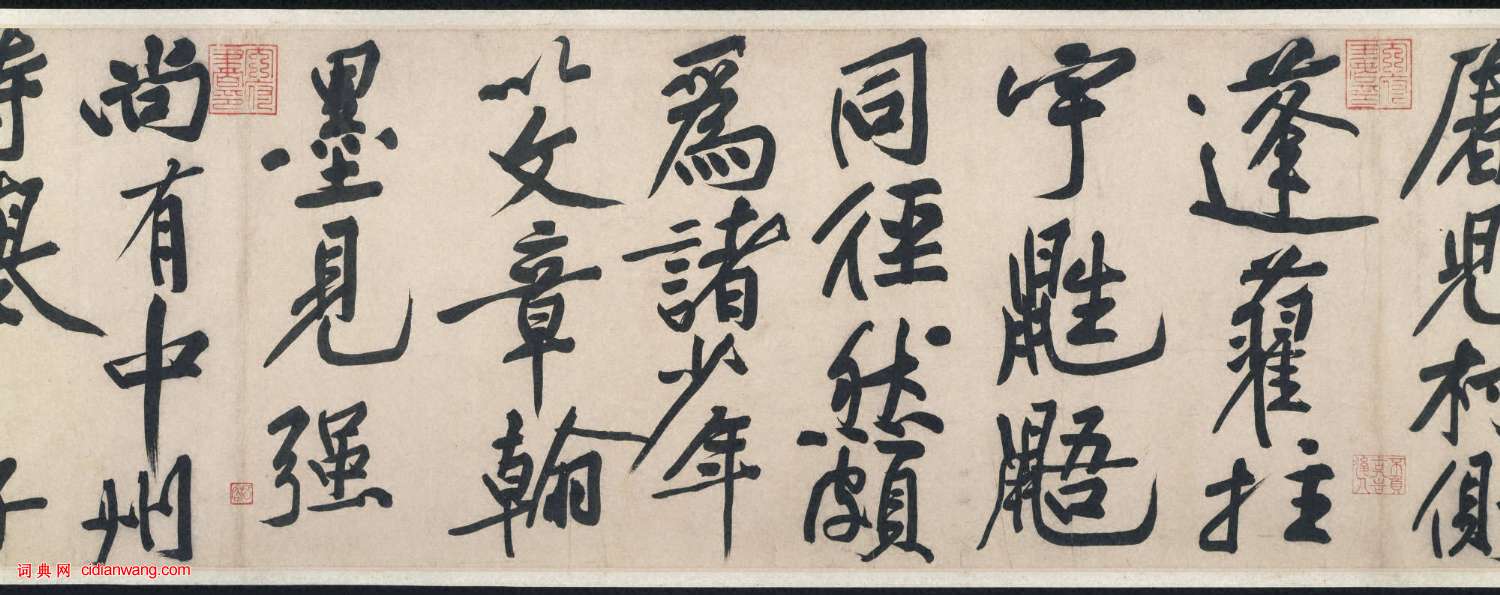 屠兒村側
蓬藋拄
宇鼪鼯
同徑然頗
爲諸少年
以文章翰
墨見强
尚有中州
时
词典网 cidianwang.com